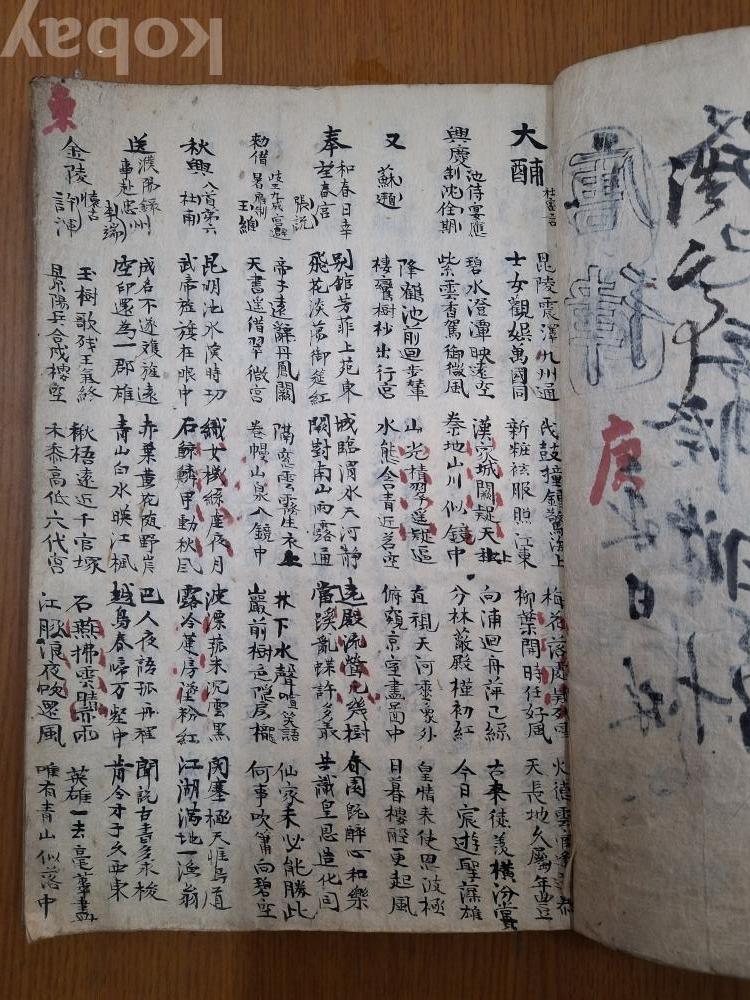 東
大酺 杜審言
毘陵震澤九州通
士女觀娛萬國同
民鼓撞鐘驚海上
新粧袨服照江東
梅花落處疑殘雪
柳葉開時任好風
火德雲官逢道泰
天長地久屬年豊
興慶池侍宴應制 沈佺期
碧水澄潭映遠空
紫雲香駕御微風
漢家城闕疑天上
秦地山川似鏡中
向浦迴舟萍已綠
分林蔽殿槿初紅
古來徒羨橫汾賞
今日宸遊聖藻雄
又 蘇頲
降鶴池前迴步輦
棲鸞樹杪出行宮
山光積翠遙疑逼
水態含青近若空
直視天河垂象外
俯窺京室畫圖中
皇情未使恩波極
日暮樓船更起風
奉和春日幸望春宮 張說
別館芳菲上苑東
飛花淡蕩御筵紅
城臨渭水天河靜
闕對南山雨露通
遶殿流鶯凡幾樹
當蹊亂蝶許多叢
春園既醉心和樂
共識皇恩造化同
勅借岐王九成宮避暑應制 王維
帝子遠辭丹鳳闕
天書遙借翠微宮
隔窓雲霧生衣上
卷幔山泉入鏡中
林下水聲喧笑語
巖前樹色隱房櫳
仙家未必能勝此
何事吹簫向碧空
秋興八首第六 杜甫
昆明池水漢時功
武帝旌旗在眼中
織女機絲虛夜月
石鯨鱗甲動秋風
波漂菰米沉雲黑
露冷蓮房墜粉紅
關塞極天惟鳥道
江湖滿地一漁翁
送濮陽錄事赴忠州 李端
成名不遂雙旌遠
空印還為一郡雄
赤葉黃花隨野岸
青山白水映江楓
巴人夜語孤舟裡
越鳥春啼万壑中
聞說古書多未校
肯令才子久西東
金陵懷古 許渾
玉樹歌殘王氣終
景陽兵合戍樓空
楸梧遠近千官塚
禾黍高低六代宮
石燕拂雲晴亦雨
江豚浪夜吹還風
英雄一去豪華盡
唯有青山似落中
庚
kobay